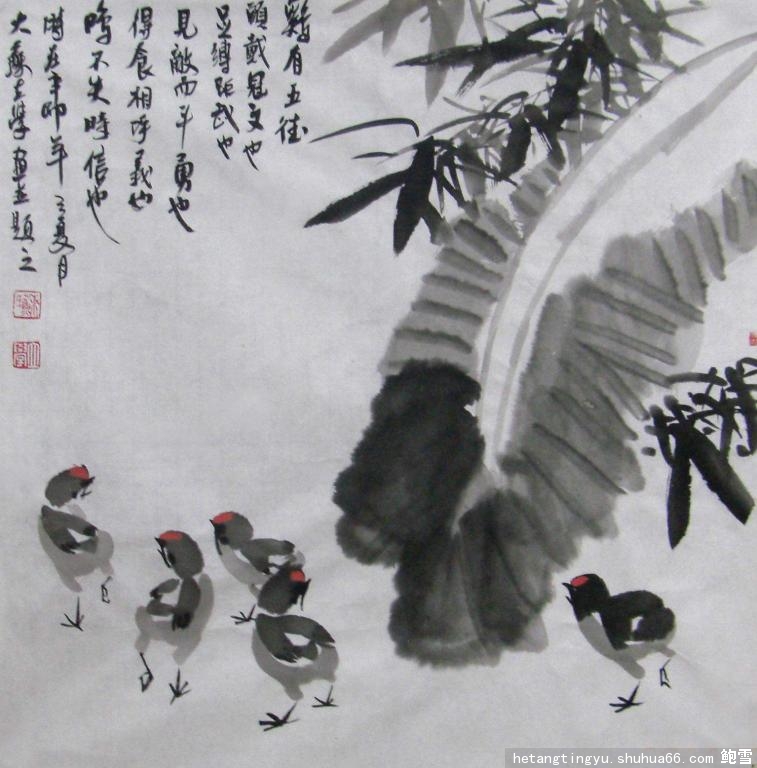 鷄有五德
頭戴冠文也
足縛距武也
見敵而斗勇也
得食相呼義也
鳴不失時信也
時在辛卯年之夏月
大廉畫並題之
hetangtingyu.shuhua66.com 鲍雪